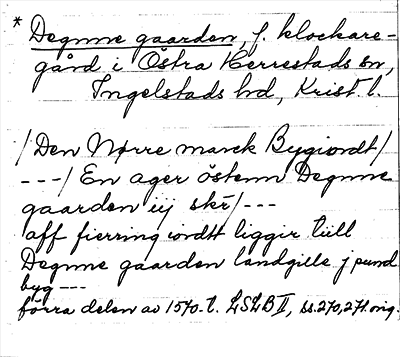 * Degnne gaarden, f. klockare-
gård i Östra Herrestads sn,
Ingelstads hd, Krist. l.
/Den Nørre marck Bygiordt/
---/ En ager östenn Degnne
gaarden iij skr/---
aff fierring iordtt liggir tiill
Degnne gaarden landgille j pund
byg ---
förra delen av 1570-t. LSLB II, ss. 270, 271. orig.